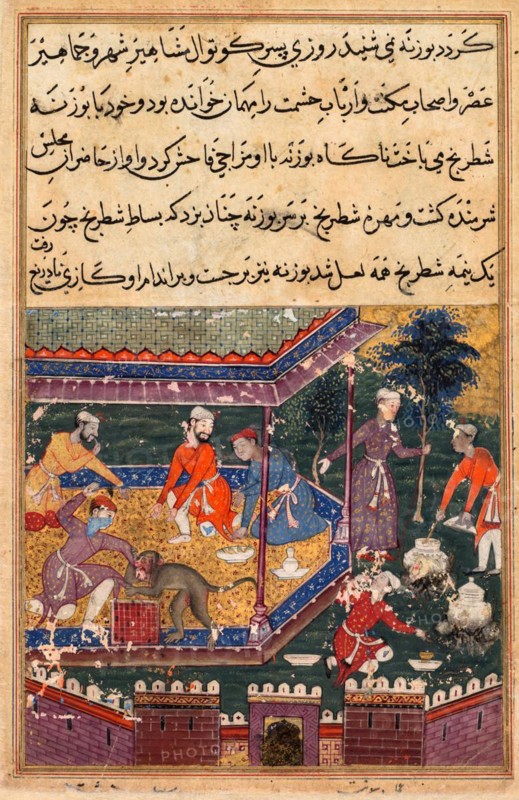 کردد بوزنه نمی شنید روزی پسر کوتوال مشاهیر شهر و جماهیر
عصر و اصحاب مکنت و ارباب حشمت را مهمان خوانده بود و خود با بوزنه
شطرنج می باخت ناکاه بوزنه با او مزاجی فاحش کرد و او از حاضران مجلس
شرمنده کشت و مهره شطرنج بر سر بوزنه چنان بزد که بساط شطرنج چون
یک نیمه شطرنج همه لعل شد بوزنه نیز برجست و بر اندام او کازی
رفت
PHOTO